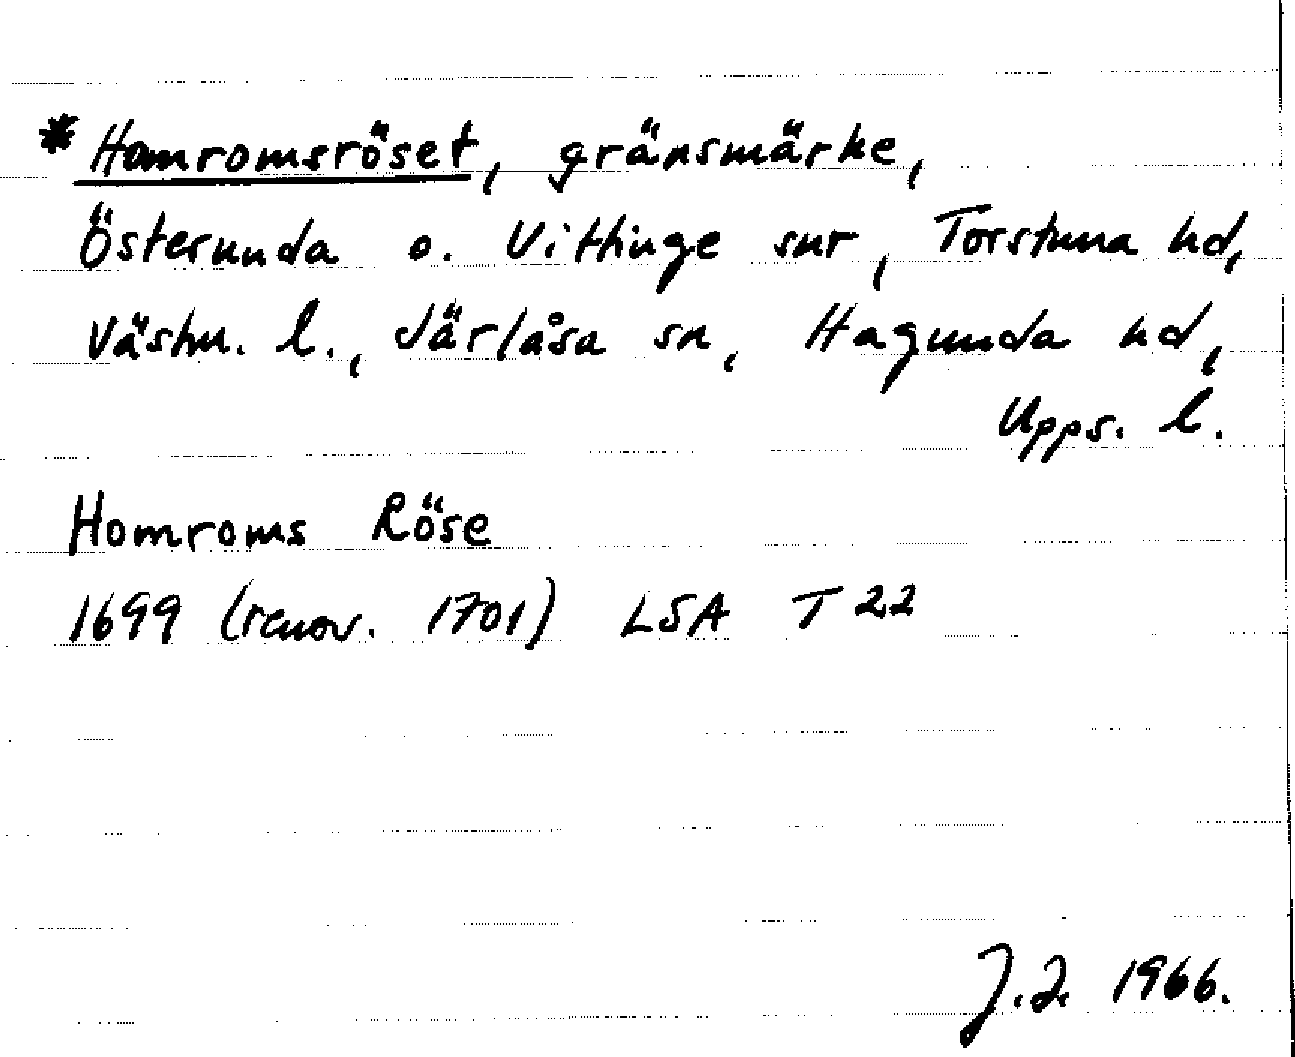 * Homromsröset, gränsmärke,
Österunda o. Vittinge snr, Torstuna hd,
Västm. l., Järlåsa sn, Hagunda hd,
Upps. l.
Homroms Röse
1699 (renov. 1701) LSA T 22
J.I. 1966.